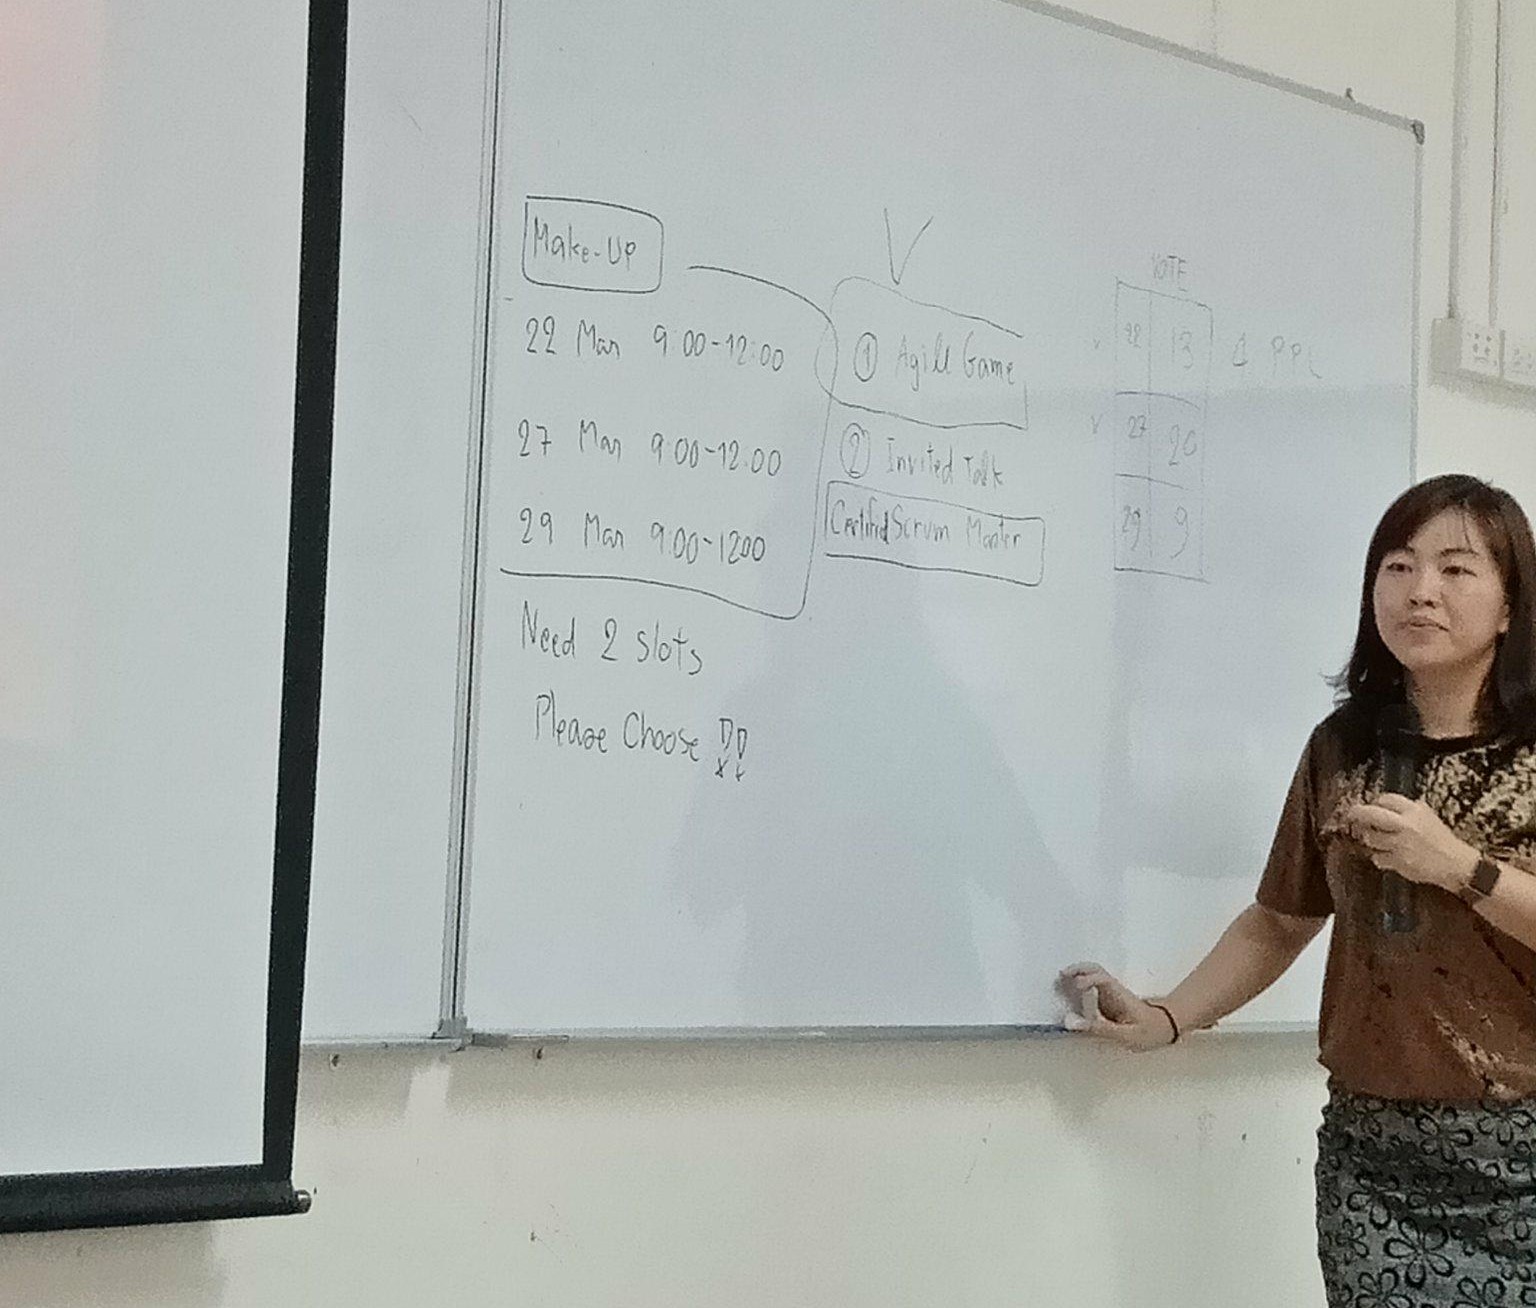 Make-Up
22 Mar 9:00-12:00
27 Mar 9:00-12:00
29 Mar 9:00-1200
Need 2 slots
Please Choose
V
① Agile Game
② Invited Talk
Certified Scrum Master
VOTE
v 22 13
v 27 20
29 9